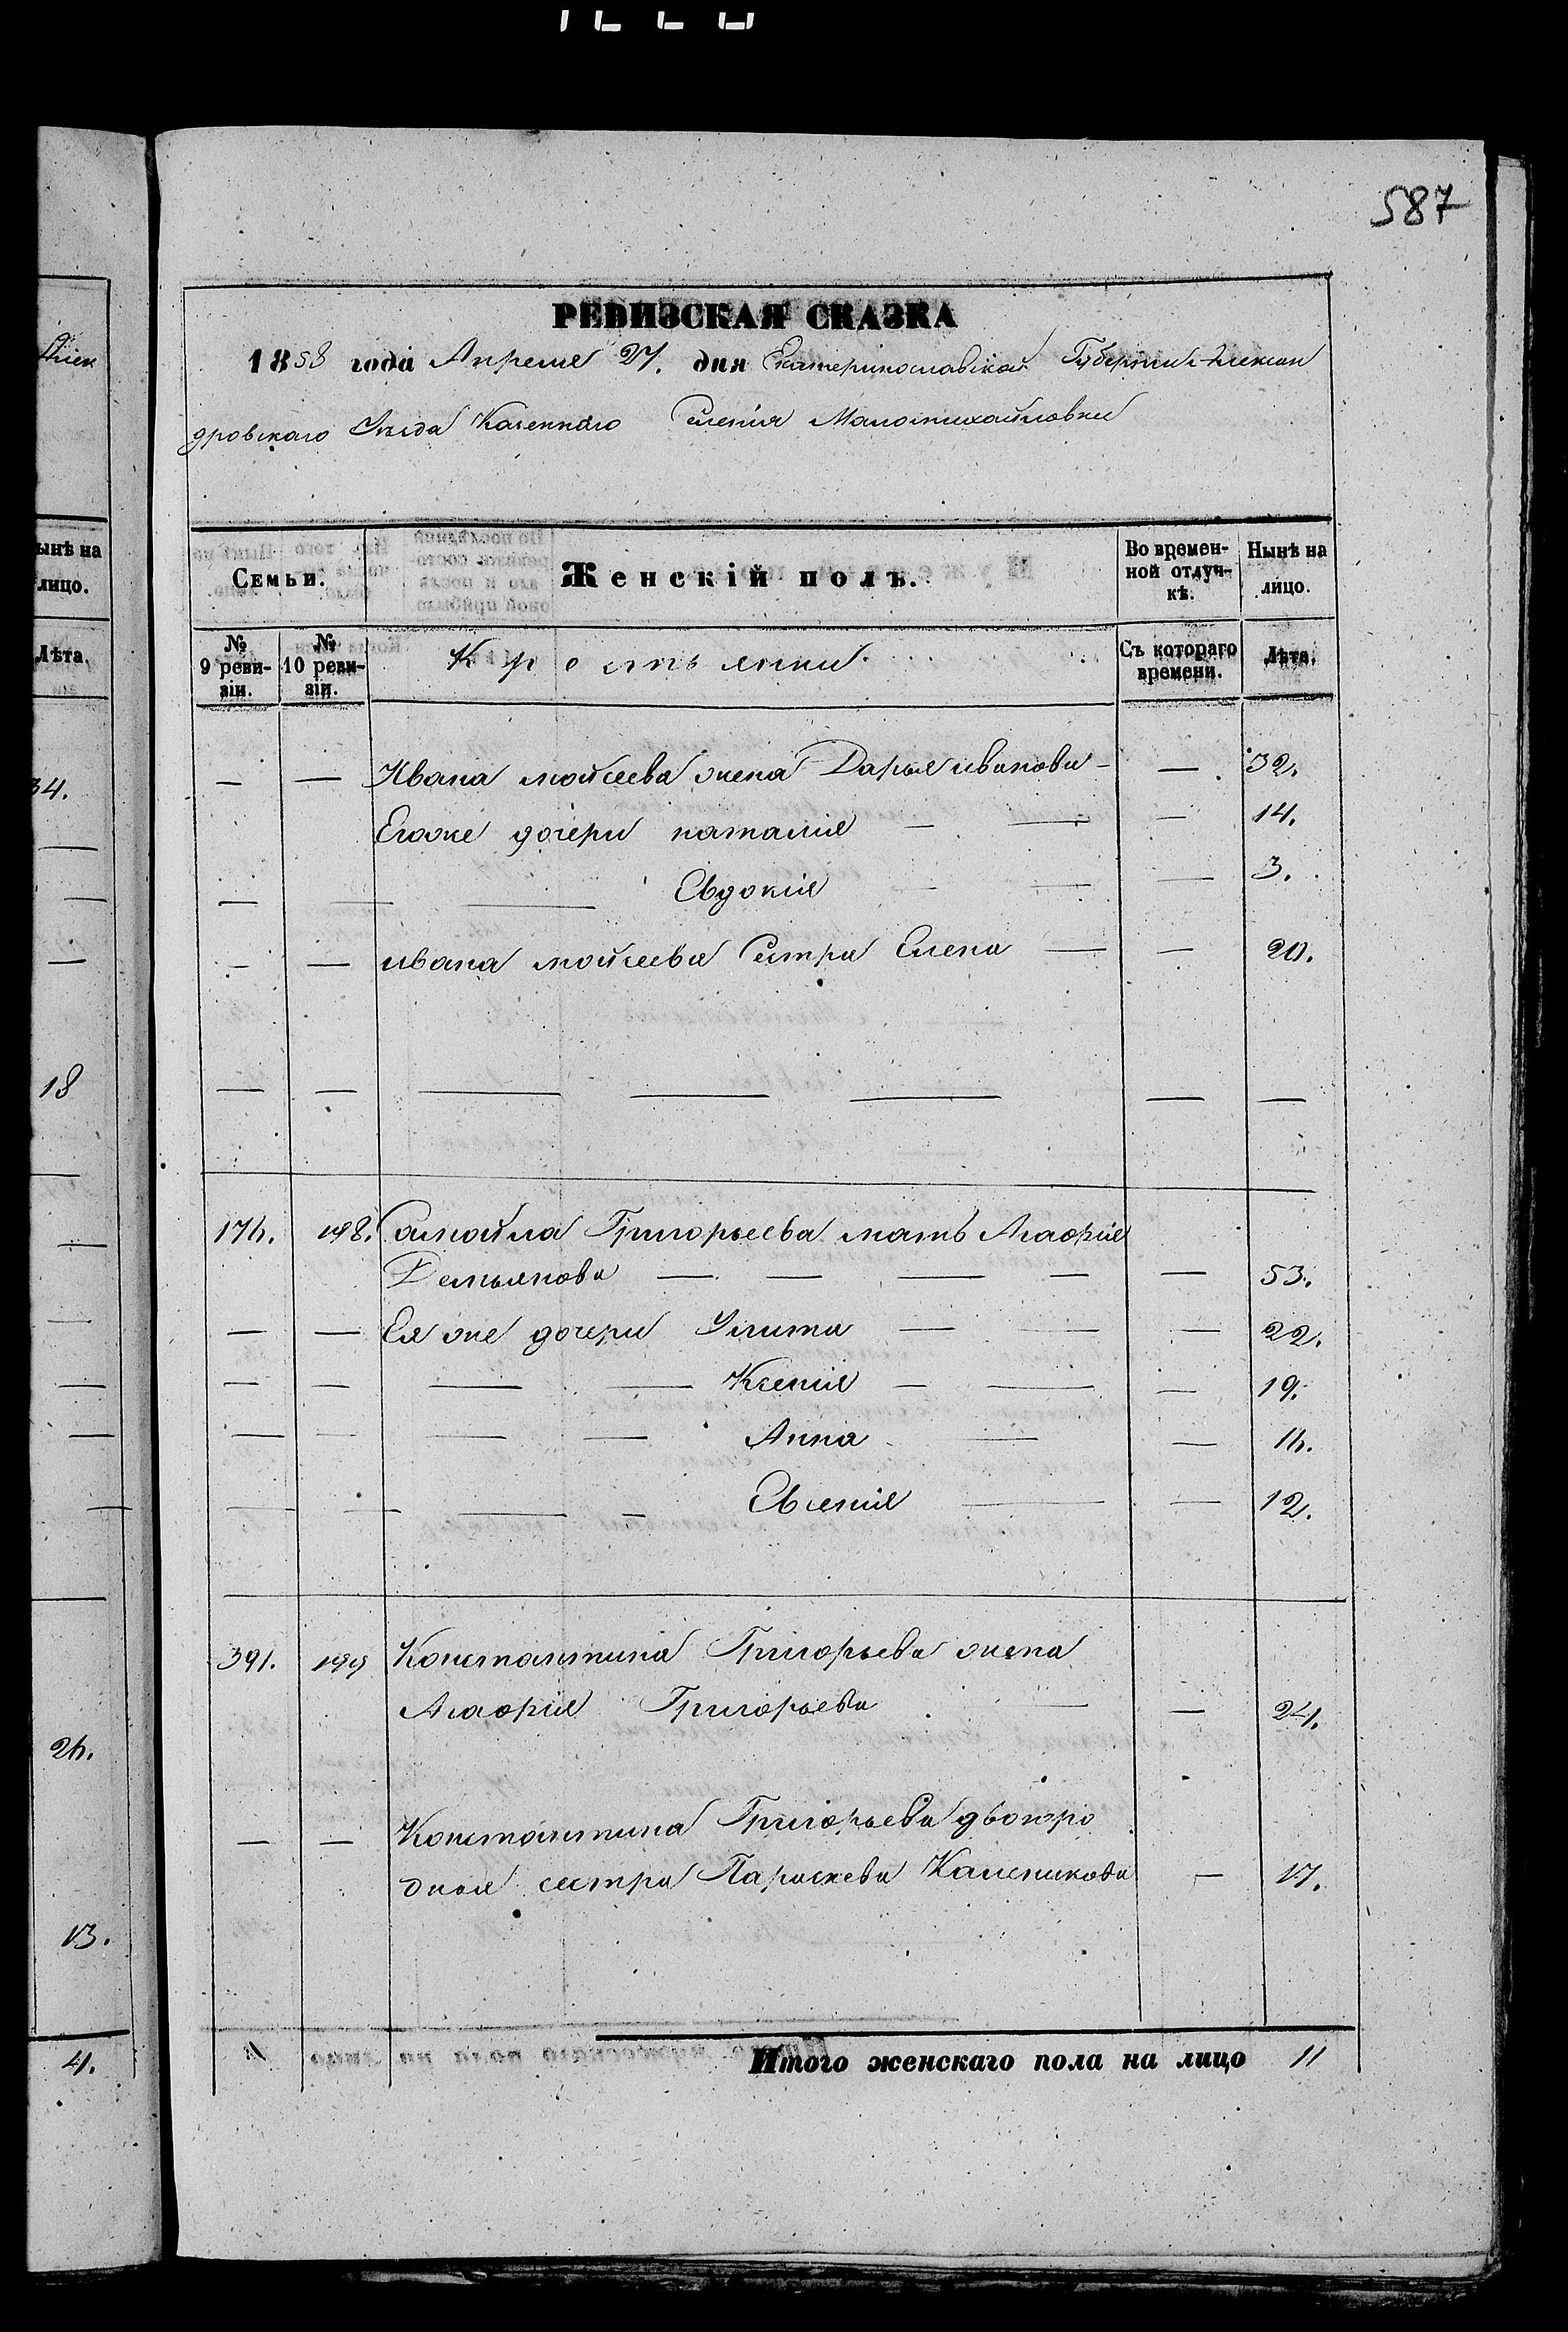 587
РЕВИЗСКАЯ СКАЗКА
1858 года Апреля 27. дня Екатеринославской Губернии Алексан
дровскаго Уезда Казеннаго Селенія Маломихайловки
Семьи.
Женскій полъ.
Во времен-
ной отлуч-
кѣ.
Нынѣ на
лицо.
№
9 реви-
зіи.
№
10 реви-
зіи.
Крестьянки
Съ котораго
времени.
Лѣта.
— — Ивана мойсеева жена Дарья иванова — — 32.
Егоже дочери наталія — — — 14.
— — — Евдокія — — — 3.
— — ивана мойсеева Сестра Елена — — 20.
— — — — — — —
174. 198. Самойла Григорьева мать Агафія
Демьянова — — — — — 53.
— — Ея же дочери Улита — — — 22.
— — — — Ксенія — — — 19.
— — — — Анна — — 14.
— — — — Евгенія — — 12.
391. 199 Константина Григорьева жена
Агафія Григорьева — — 24.
— — Константина Григорьева двоюро
дная сестра Параскева Каленикова — 17.
Итого женскаго пола на лицо 11
ынѣ на
лицо.
Лѣта.
34.
18
24.
13.
4.